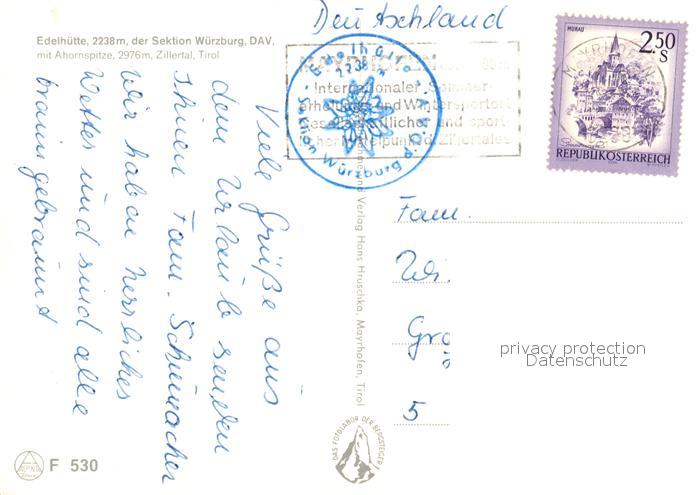 Deutschland
Edelhütte, 2238m, der Sektion Würzburg, DAV.
mit Ahornspitze, 2976m, Zillertal, Tirol
Viele Grüße aus
dem Urlaub senden
Ihnen Fam. Schumacher
Wir haben herrliches
Wetter und sind alle
braun gebrannt
Edelhütte
2238 m
Sektion Würzburg d. D.A.V.
Internationaler Sommer-
erholungs- und Wintersportort
gesellschaftlicher und sport-
licher Mittelpunkt d. Zillertales
MURAU
2.50
S
REPUBLIK ÖSTERREICH
MAYRHOFEN
Fam.
Wi.
Gro
5
privacy protection
Datenschutz
und Verlag Hans Hruschka, Mayrhofen, Tirol
DAS FOTOLABOR DER BERGSTEIGER
F 530